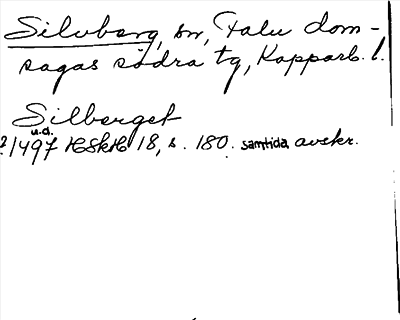 Silvberg, sn, Falu dom-
sagas södra tg, Kopparb. l.
Silberget
u.d.
? 1497 HSkH 18, s. 180. samtida avskr.